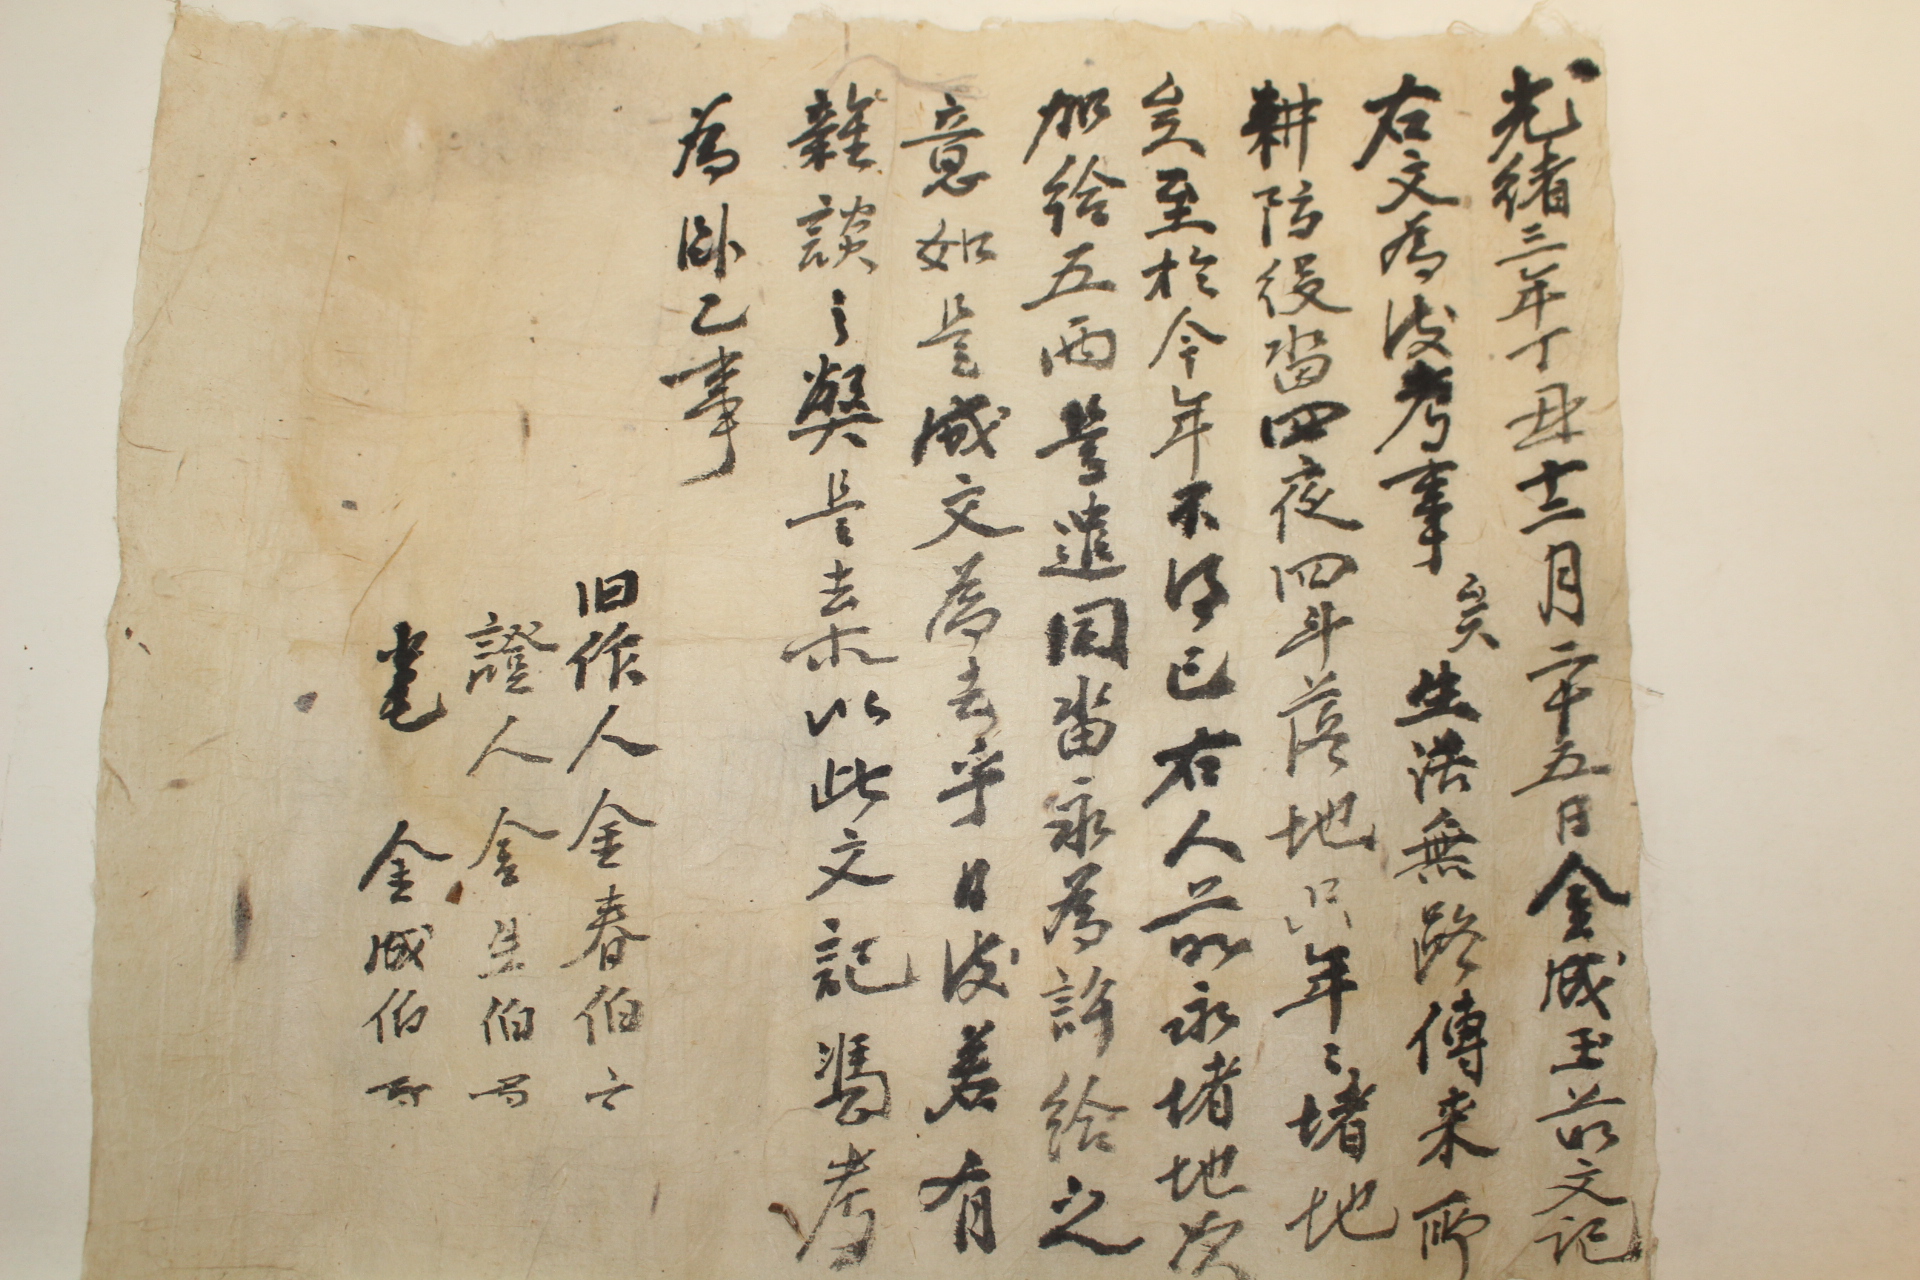 光緒三年丁丑十二月二十五日金成玉前文記
右文爲後考事矣生活無路傳來所
耕防役畓四夜四斗落地只年〻堵地
矣至於今年不得已右人前永堵地次
加給五兩是遣同畓永爲許給之
意如是成文爲去乎日後若有
雜談之獘是去乃以此文記憑考
爲臥乙事
旧作人金春伯
證人金生伯
筆 金成伯